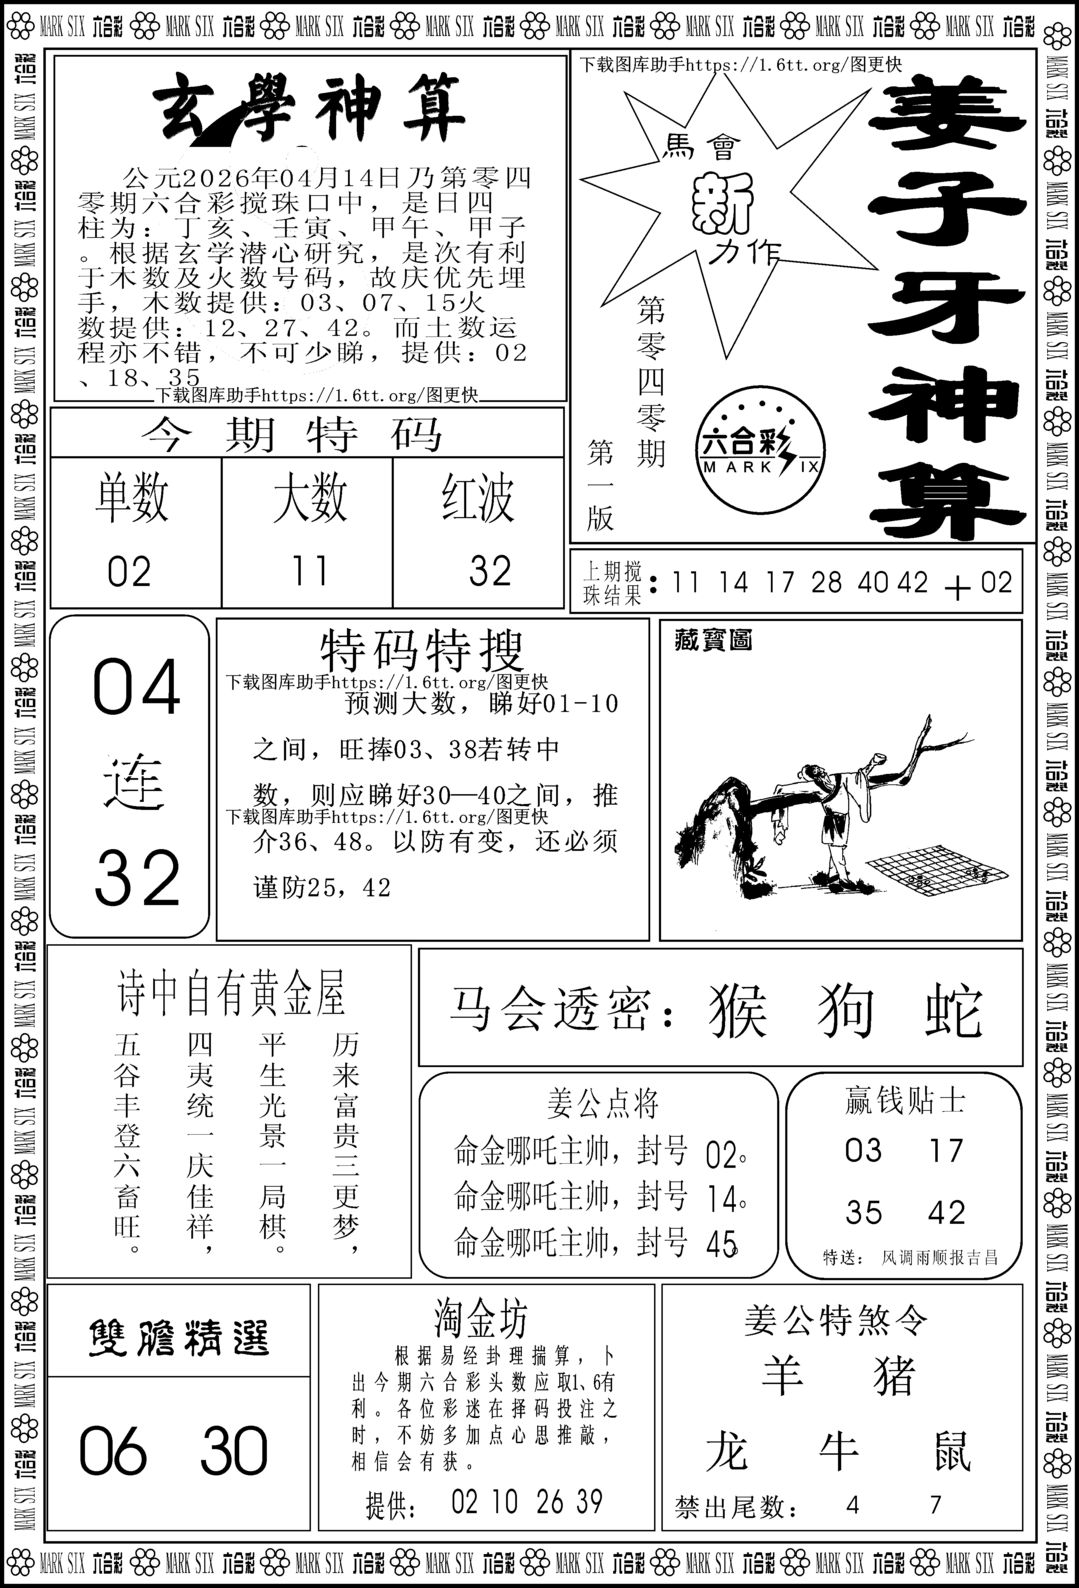 MARK SIX 六合彩 MARK SIX 六合彩 MARK SIX 六合彩 MARK SIX 六合彩 MARK SIX 六合彩 MARK SIX 六合彩 MARK SIX 六合彩 MARK SIX 六合彩
玄學神算
公元2026年04月14日乃第零四
零期六合彩搅珠口中，是日四
柱为：丁亥、壬寅、甲午、甲子
。根据玄学潜心研究，是次有利
于木数及火数号码，故庆优先埋
手，木数提供：03、07、15火
数提供：12、27、42。而土数运
程亦不错，不可少睇，提供：02
、18、35
下载图库助手https://1.6tt.org/图更快
下载图库助手https://1.6tt.org/图更快
馬會
新
力作
第零四零期
第一版
六合彩
MARK SIX
姜子牙神算
今期特码
单数 大数 红波
02 11 32
上期搅
珠结果：11 14 17 28 40 42 ＋ 02
04
连
32
特码特搜
下载图库助手https://1.6tt.org/图更快
预测大数，睇好01-10
之间，旺捧03、38若转中
数，则应睇好30—40之间，推
下载图库助手https://1.6tt.org/图更快
介36、48。以防有变，还必须
谨防25，42
藏寶圖
诗中自有黄金屋
历来富贵三更梦，
平生光景一局棋。
四夷统一庆佳祥，
五谷丰登六畜旺。
马会透密：猴 狗 蛇
姜公点将
命金哪吒主帅，封号 02。
命金哪吒主帅，封号 14。
命金哪吒主帅，封号 45。
赢钱贴士
03 17
35 42
特送： 风调雨顺报吉昌
雙膽精選
06 30
淘金坊
根据易经卦理揣算，卜
出今期六合彩头数应取1、6有
利。各位彩迷在择码投注之
时，不妨多加点心思推敲，
相信会有获。
提供： 02 10 26 39
姜公特煞令
羊 猪
龙 牛 鼠
禁出尾数： 4 7
MARK SIX 六合彩 MARK SIX 六合彩 MARK SIX 六合彩 MARK SIX 六合彩 MARK SIX 六合彩 MARK SIX 六合彩 MARK SIX 六合彩 MARK SIX 六合彩